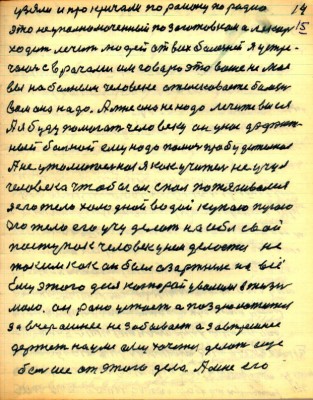 узяли и прокричали по району по радио 14
это не уполномоченный по заготовкам а лекар 15
ходит лечит людей от всех болезней я устре-
чался с врачами им говорю это ваше не мое
вы на больном человеке отыскиваете болезнь
Вам она надо. А мне она не надо лечите вы сами
А я буду помогать человеку он у нас держит-
ный больной ему надо помощь чтобы
А не я как учитель не учу
человека чтобы он спал потягивался
я его тело холодной водой купаю
его тело его учу делать на себя свой
поступок человек у меня делается не
таким как он был азартным на всё
Ему этого дня который увалил в жизни
мало. он рано встает а поздно ложится
за вчерашнее не забывает а завтрашнее
держит на уме ему хочется делать еще
больше от этого дела. А мне его